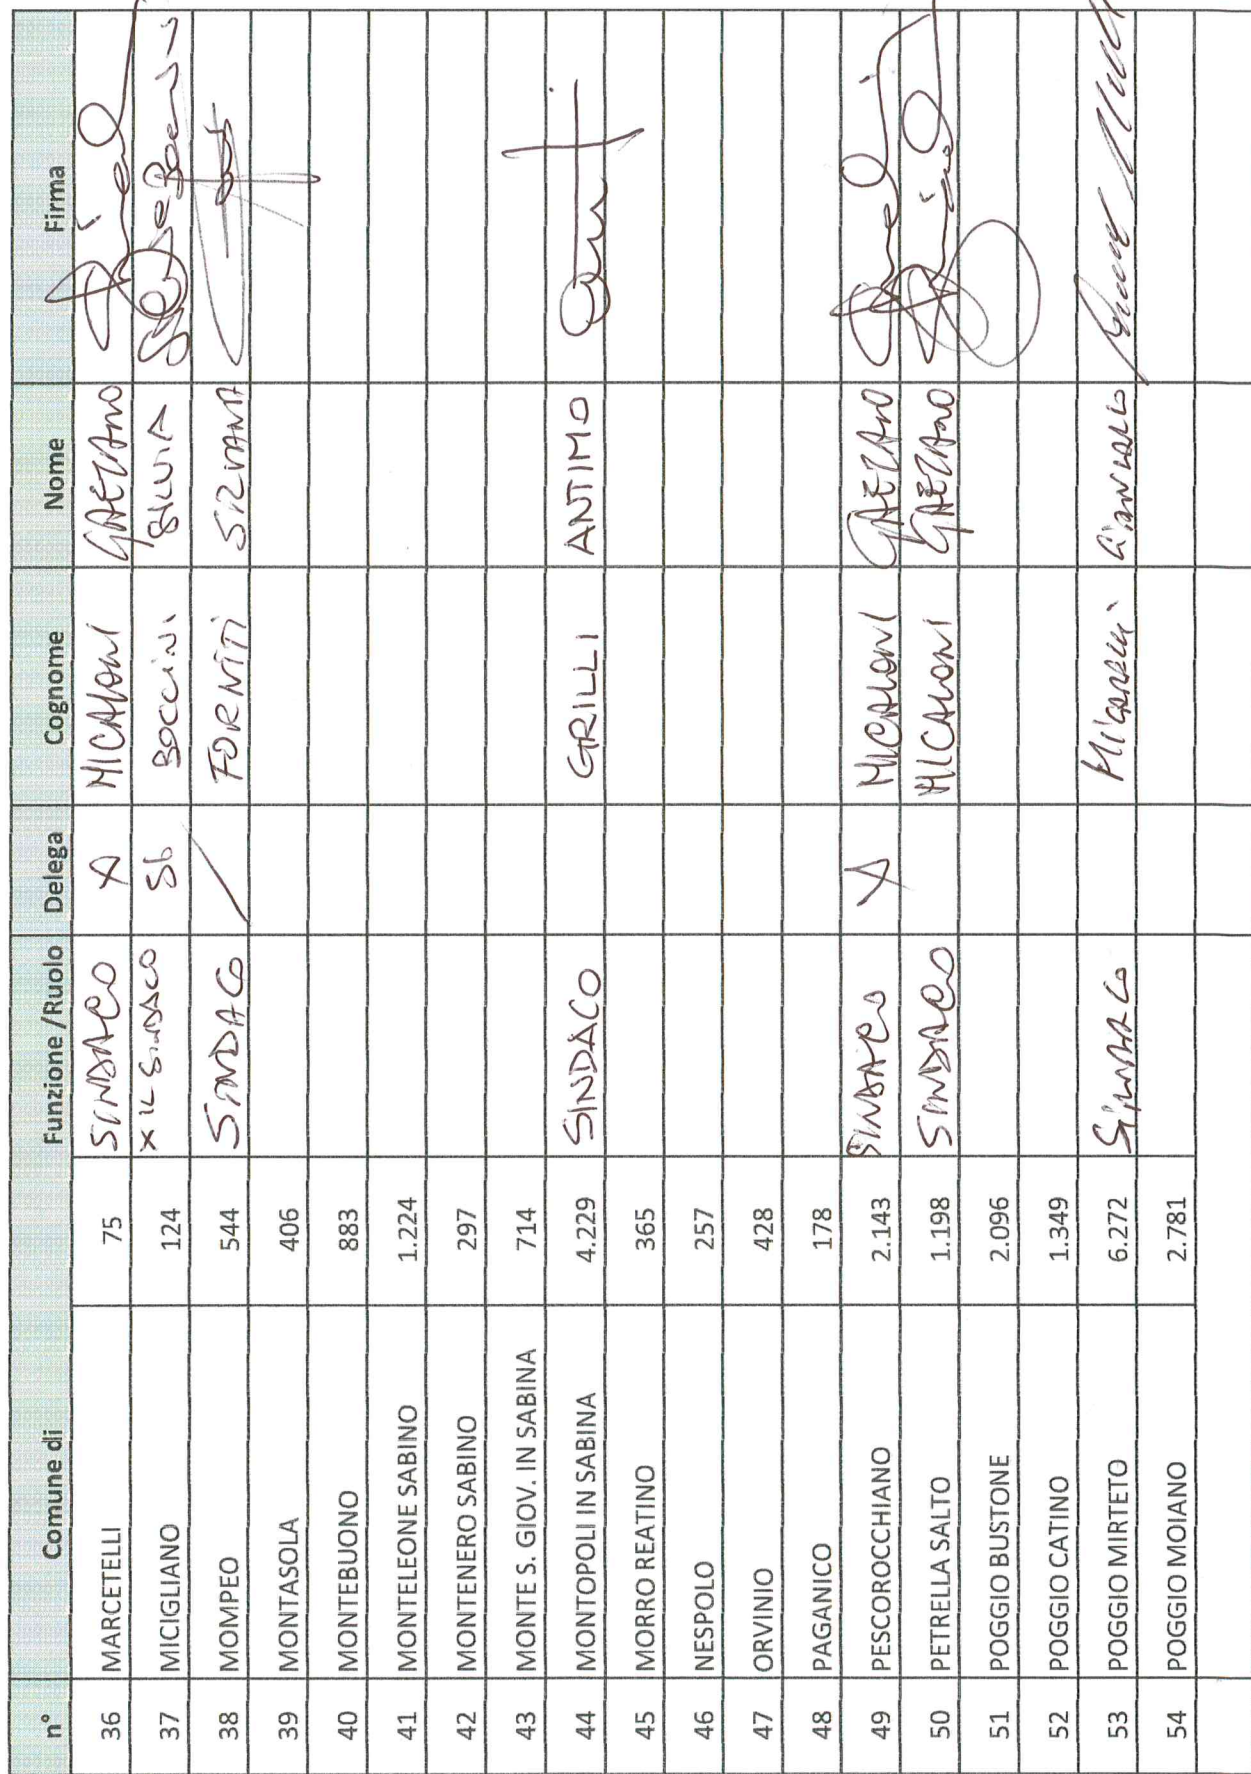 n° Comune di Funzione /Ruolo Delega Cognome Nome Firma
36 MARCETELLI 75 SINDACO X MICALONI GAETANO
37 MICIGLIANO 124 X IL SINDACO BOCCINI SILVIA
38 MOMPEO 544 SINDACO / FORNITI SILVANA
39 MONTASOLA 406
40 MONTEBUONO 883
41 MONTELEONE SABINO 1.224
42 MONTENERO SABINO 297
43 MONTE S. GIOV. IN SABINA 714
44 MONTOPOLI IN SABINA 4.229 SINDACO GRILLI ANTIMO
45 MORRO REATINO 365
46 NESPOLO 257
47 ORVINIO 428
48 PAGANICO 178
49 PESCOROCCHIANO 2.143 SINDACO X MICALONI GAETANO
50 PETRELLA SALTO 1.198 SINDACO MICALONI GAETANO
51 POGGIO BUSTONE 2.096
52 POGGIO CATINO 1.349
53 POGGIO MIRTETO 6.272 SINDACO
54 POGGIO MOIANO 2.781